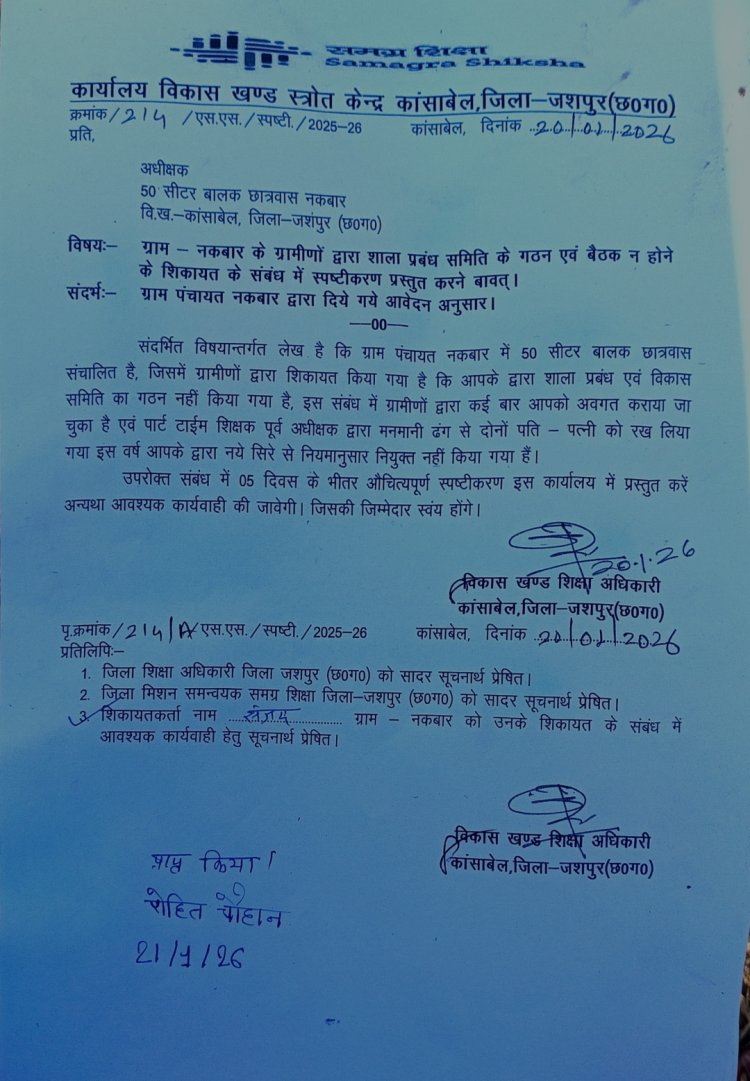 समग्र शिक्षा
Samagra Shiksha
कार्यालय विकास खण्ड स्त्रोत केन्द्र कांसाबेल,जिला–जशपुर(छ0ग0)
क्रमांक/214 /एस.एस./स्पष्टी./2025-26 कांसाबेल, दिनांक ..20/01/2026
प्रति,
अधीक्षक
50 सीटर बालक छात्रावास नकबार
वि.ख.–कांसाबेल, जिला–जशंपुर (छ0ग0)
विषयः– ग्राम – नकबार के ग्रामीणों द्वारा शाला प्रबंध समिति के गठन एवं बैठक न होने
के शिकायत के संबंध में स्पष्टीकरण प्रस्तुत करने बावत्।
संदर्भः– ग्राम पंचायत नकबार द्वारा दिये गये आवेदन अनुसार।
—00—
संदर्भित विषयान्तर्गत लेख है कि ग्राम पंचायत नकबार में 50 सीटर बालक छात्रवास
संचालित है, जिसमें ग्रामीणों द्वारा शिकायत किया गया है कि आपके द्वारा शाला प्रबंध एवं विकास
समिति का गठन नहीं किया गया है, इस संबंध में ग्रामीणों द्वारा कई बार आपको अवगत कराया जा
चुका है एवं पार्ट टाईम शिक्षक पूर्व अधीक्षक द्वारा मनमानी ढंग से दोनों पति – पत्नी को रख लिया
गया इस वर्ष आपके द्वारा नये सिरे से नियमानुसार नियुक्त नहीं किया गया हैं।
उपरोक्त संबंध में 05 दिवस के भीतर औचित्यपूर्ण स्पष्टीकरण इस कार्यालय में प्रस्तुत करें
अन्यथा आवश्यक कार्यवाही की जावेगी। जिसकी जिम्मेदार स्वंय होंगे।
20.1.26
विकास खण्ड शिक्षा अधिकारी
कांसाबेल,जिला–जशपुर(छ0ग0)
पृ.क्रमांक/214/A/एस.एस./स्पष्टी./2025-26 कांसाबेल, दिनांक ..20/01/2026
प्रतिलिपिः–
1. जिला शिक्षा अधिकारी जिला जशपुर (छ0ग0) को सादर सूचनार्थ प्रेषित।
2. जिला मिशन समन्वयक समग्र शिक्षा जिला–जशपुर (छ0ग0) को सादर सूचनार्थ प्रेषित।
3. शिकायतकर्ता नाम .....संजय..... ग्राम – नकबार को उनके शिकायत के संबंध में
आवश्यक कार्यवाही हेतु सूचनार्थ प्रेषित।
विकास खण्ड शिक्षा अधिकारी
कांसाबेल,जिला–जशपुर(छ0ग0)
प्राप्त किया।
रोहित चौहान
21/1/26